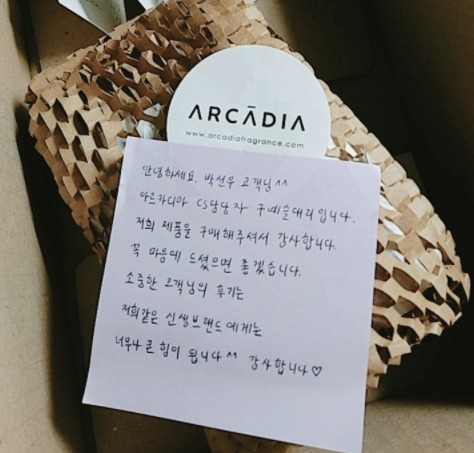 ARCĀDIA
www.arcadiafragrance.com
안녕하세요. 박선우 고객님^^
아르카디아 CS담당자 구예슬대리입니다.
저희 제품을 구매해주셔서 감사합니다.
꼭 마음에 드셨으면 좋겠습니다.
소중한 고객님의 후기는
저희같은 신생브랜드에게는
너무나 큰 힘이 됩니다^^ 감사합니다♡